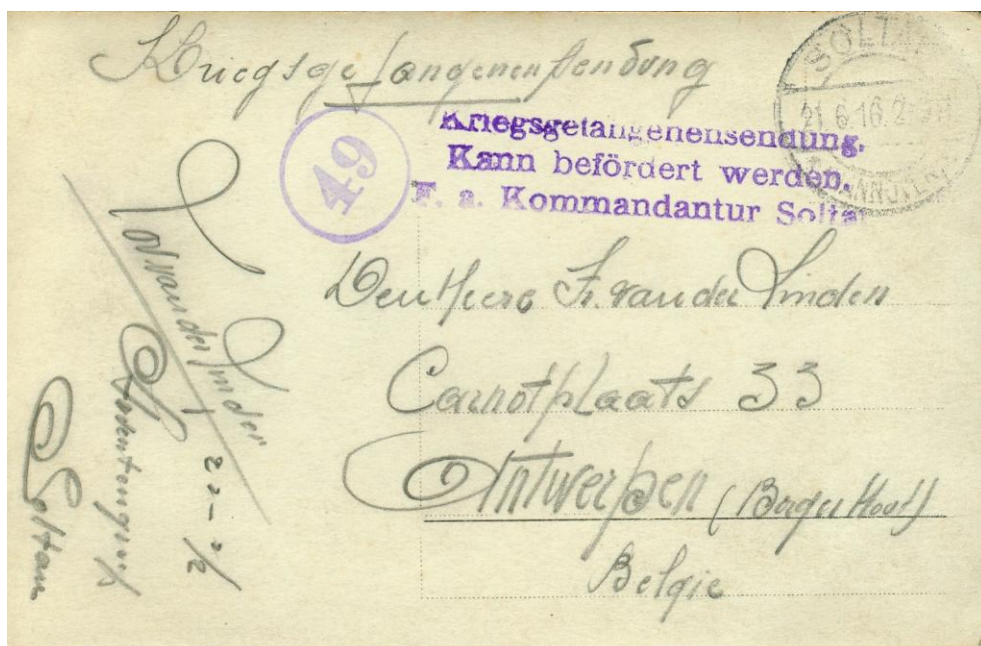 Kriegsgefangenensendung
SOLTAU
21.6.16.2
(HANNOVER)
49
Kriegsgefangenensendung.
Kann befördert werden.
F. a. Kommandantur Soltau
Den Heere Fr. van der Linden
Carnotplaats 33
Antwerpen
Belgie
van der Linden
Soltau